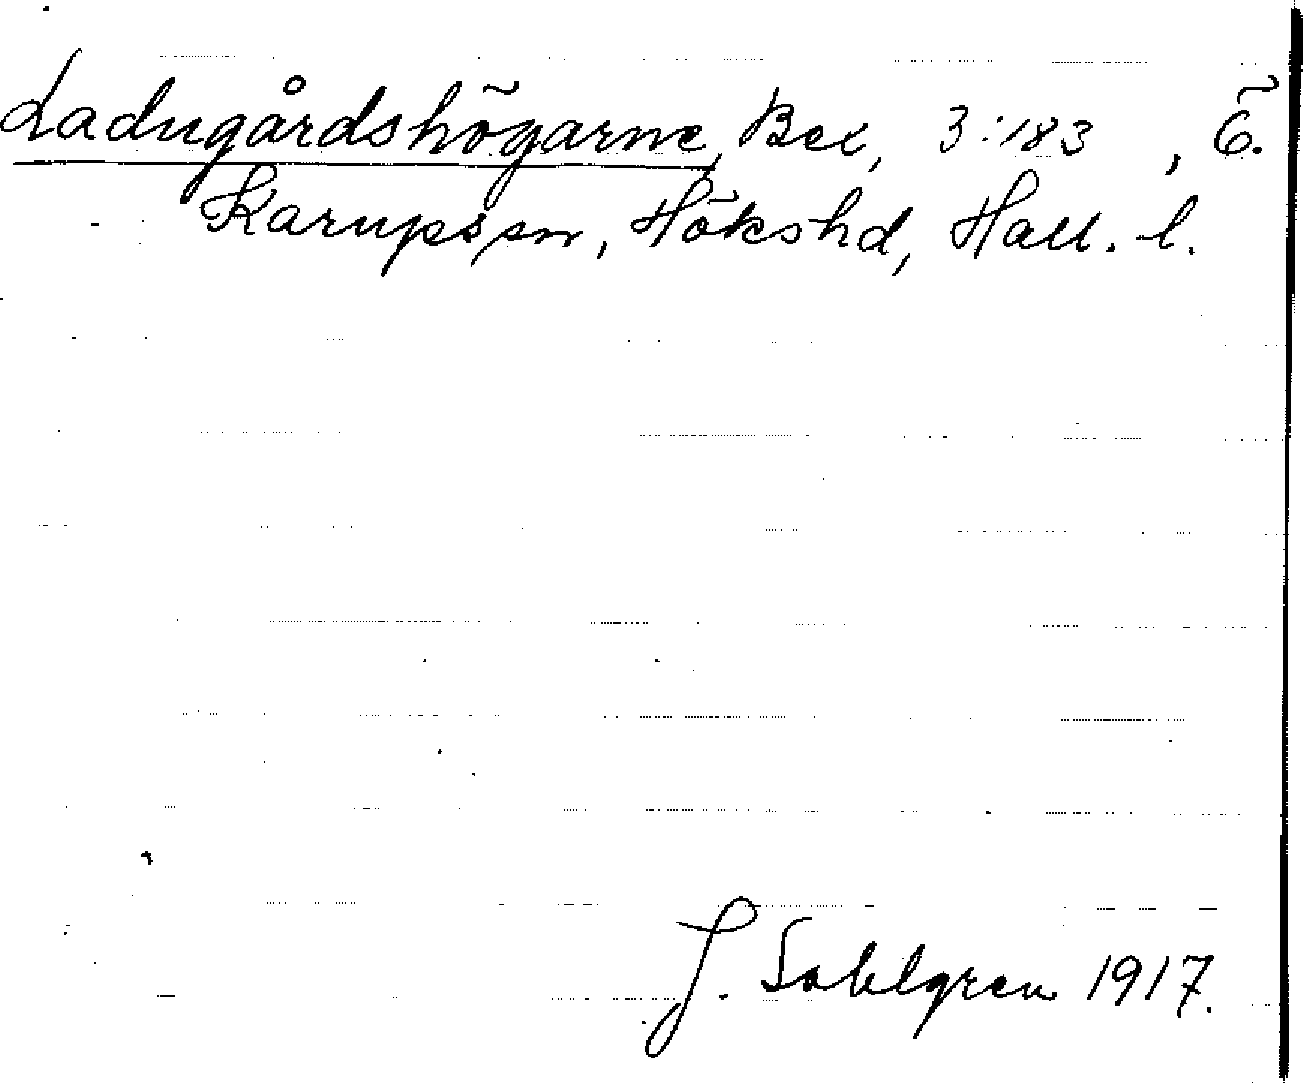 Ladugårdshögarne, Bex, 3:183, Ö.
Karups sn, Höks hd, Hall. l.
J. Sahlgren 1917.